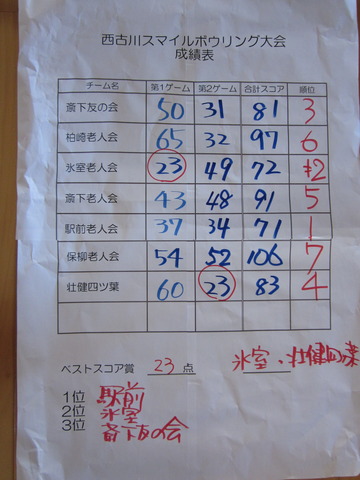 西古川スマイルボウリング大会
成績表
チーム名 第1ゲーム 第2ゲーム 合計スコア 順位
斎下友の会 50 31 81 3
柏崎老人会 65 32 97 6
氷室老人会 23 49 72 2
斎下老人会 43 48 91 5
駅前老人会 37 34 71 1
保柳老人会 54 52 106 7
壮健四ツ葉 60 23 83 4
ベストスコア賞 23 点 氷室・壮健四つ葉
1位 駅前
2位 氷室
3位 斎下友の会